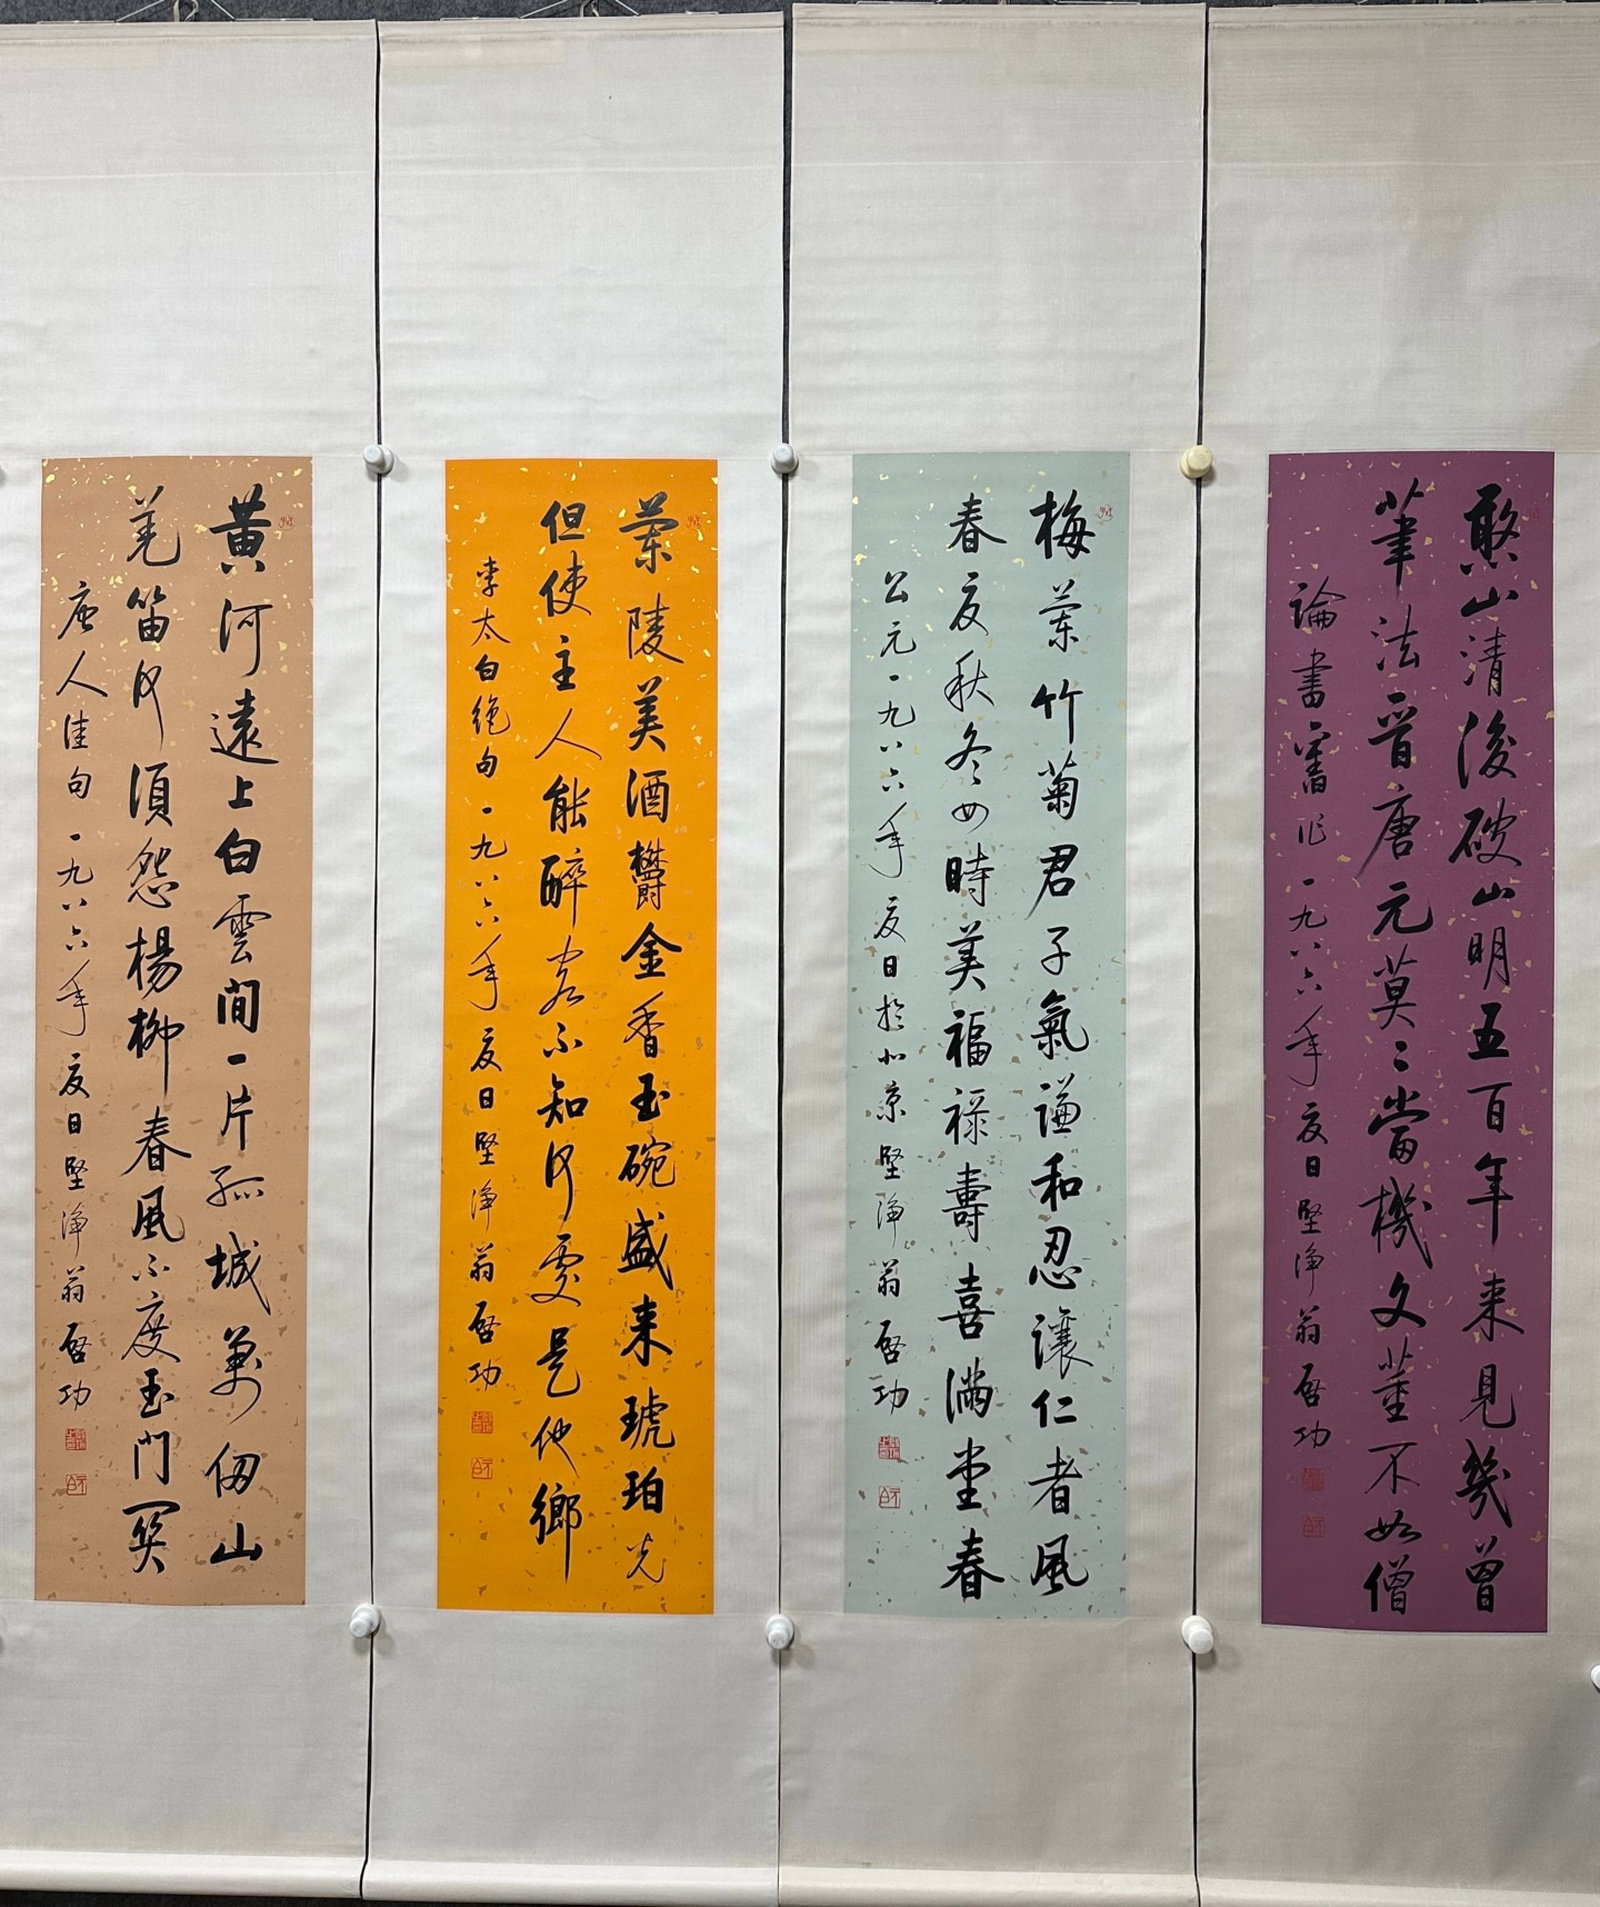 憨山清後破山明五百年来見幾曾
筆法晋唐元莫々當機文董不如僧
論書舊作一九八六年夏日堅浄翁啓功
梅蘭竹菊君子氣謙和忍讓仁者風
春夏秋冬四時美福禄壽喜满堂春
公元一九八六年夏日於北京堅浄翁啓功
蘭陵美酒欝金香玉碗盛来琥珀光
但使主人能醉客不知何處是他鄉
李太白絶句一九八六年夏日堅浄翁啓功
黄河遠上白雲間一片孤城萬仞山
羌笛何須怨楊柳春風不度玉門関
唐人佳句一九八六年夏日堅浄翁啓功